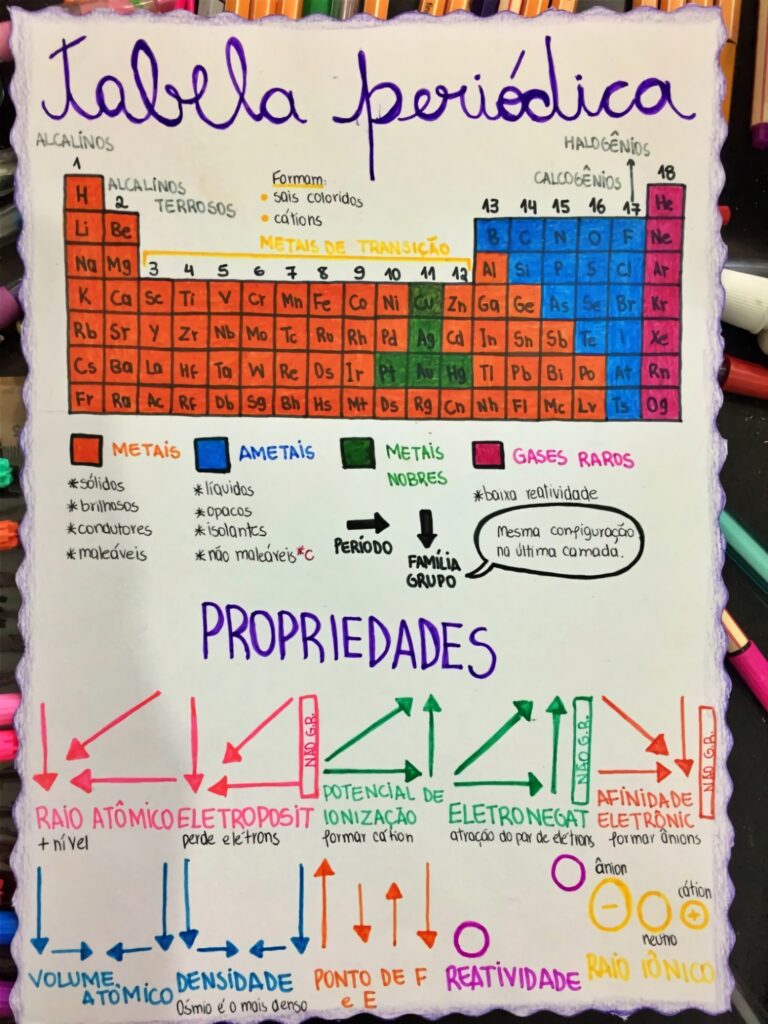 Tabela periódica
ALCALINOS
HALOGÊNIOS
1
18
ALCALINOS
TERROSOS
2
Formam:
• sais coloridos
• cátions
CALCOGÊNIOS
METAIS DE TRANSIÇÃO
13 14 15 16 17
3 4 5 6 7 8 9 10 11 12
H He
Li Be B C N O F Ne
Na Mg Al Si P S Cl Ar
K Ca Sc Ti V Cr Mn Fe Co Ni Cu Zn Ga Ge As Se Br Kr
Rb Sr Y Zr Nb Mo Tc Ru Rh Pd Ag Cd In Sn Sb Te I Xe
Cs Ba La Hf Ta W Re Os Ir Pt Au Hg Tl Pb Bi Po At Rn
Fr Ra Ac Rf Db Sg Bh Hs Mt Ds Rg Cn Nh Fl Mc Lv Ts Og
METAIS
*sólidos
*brilhosos
*condutores
*maleáveis
AMETAIS
*líquidos
*opacos
*isolantes
*não maleáveis *C
METAIS
NOBRES
GASES RAROS
*baixa reatividade
PERÍODO
FAMÍLIA
GRUPO
Mesma configuração
na última camada.
PROPRIEDADES
RAIO ATÔMICO
+ nível
NÃO G.R.
ELETROPOSIT
perde elétrons
POTENCIAL DE
IONIZAÇÃO
formar cátion
NÃO G.R.
ELETRONEGAT
atração do par de elétrons
NÃO G.R.
AFINIDADE
ELETRÔNIC
formar ânions
VOLUME
ATÔMICO
DENSIDADE
Ósmio é o mais denso
PONTO DE F
e E
REATIVIDADE
ânion
cátion
−
+
neutro
RAIO IÔNICO